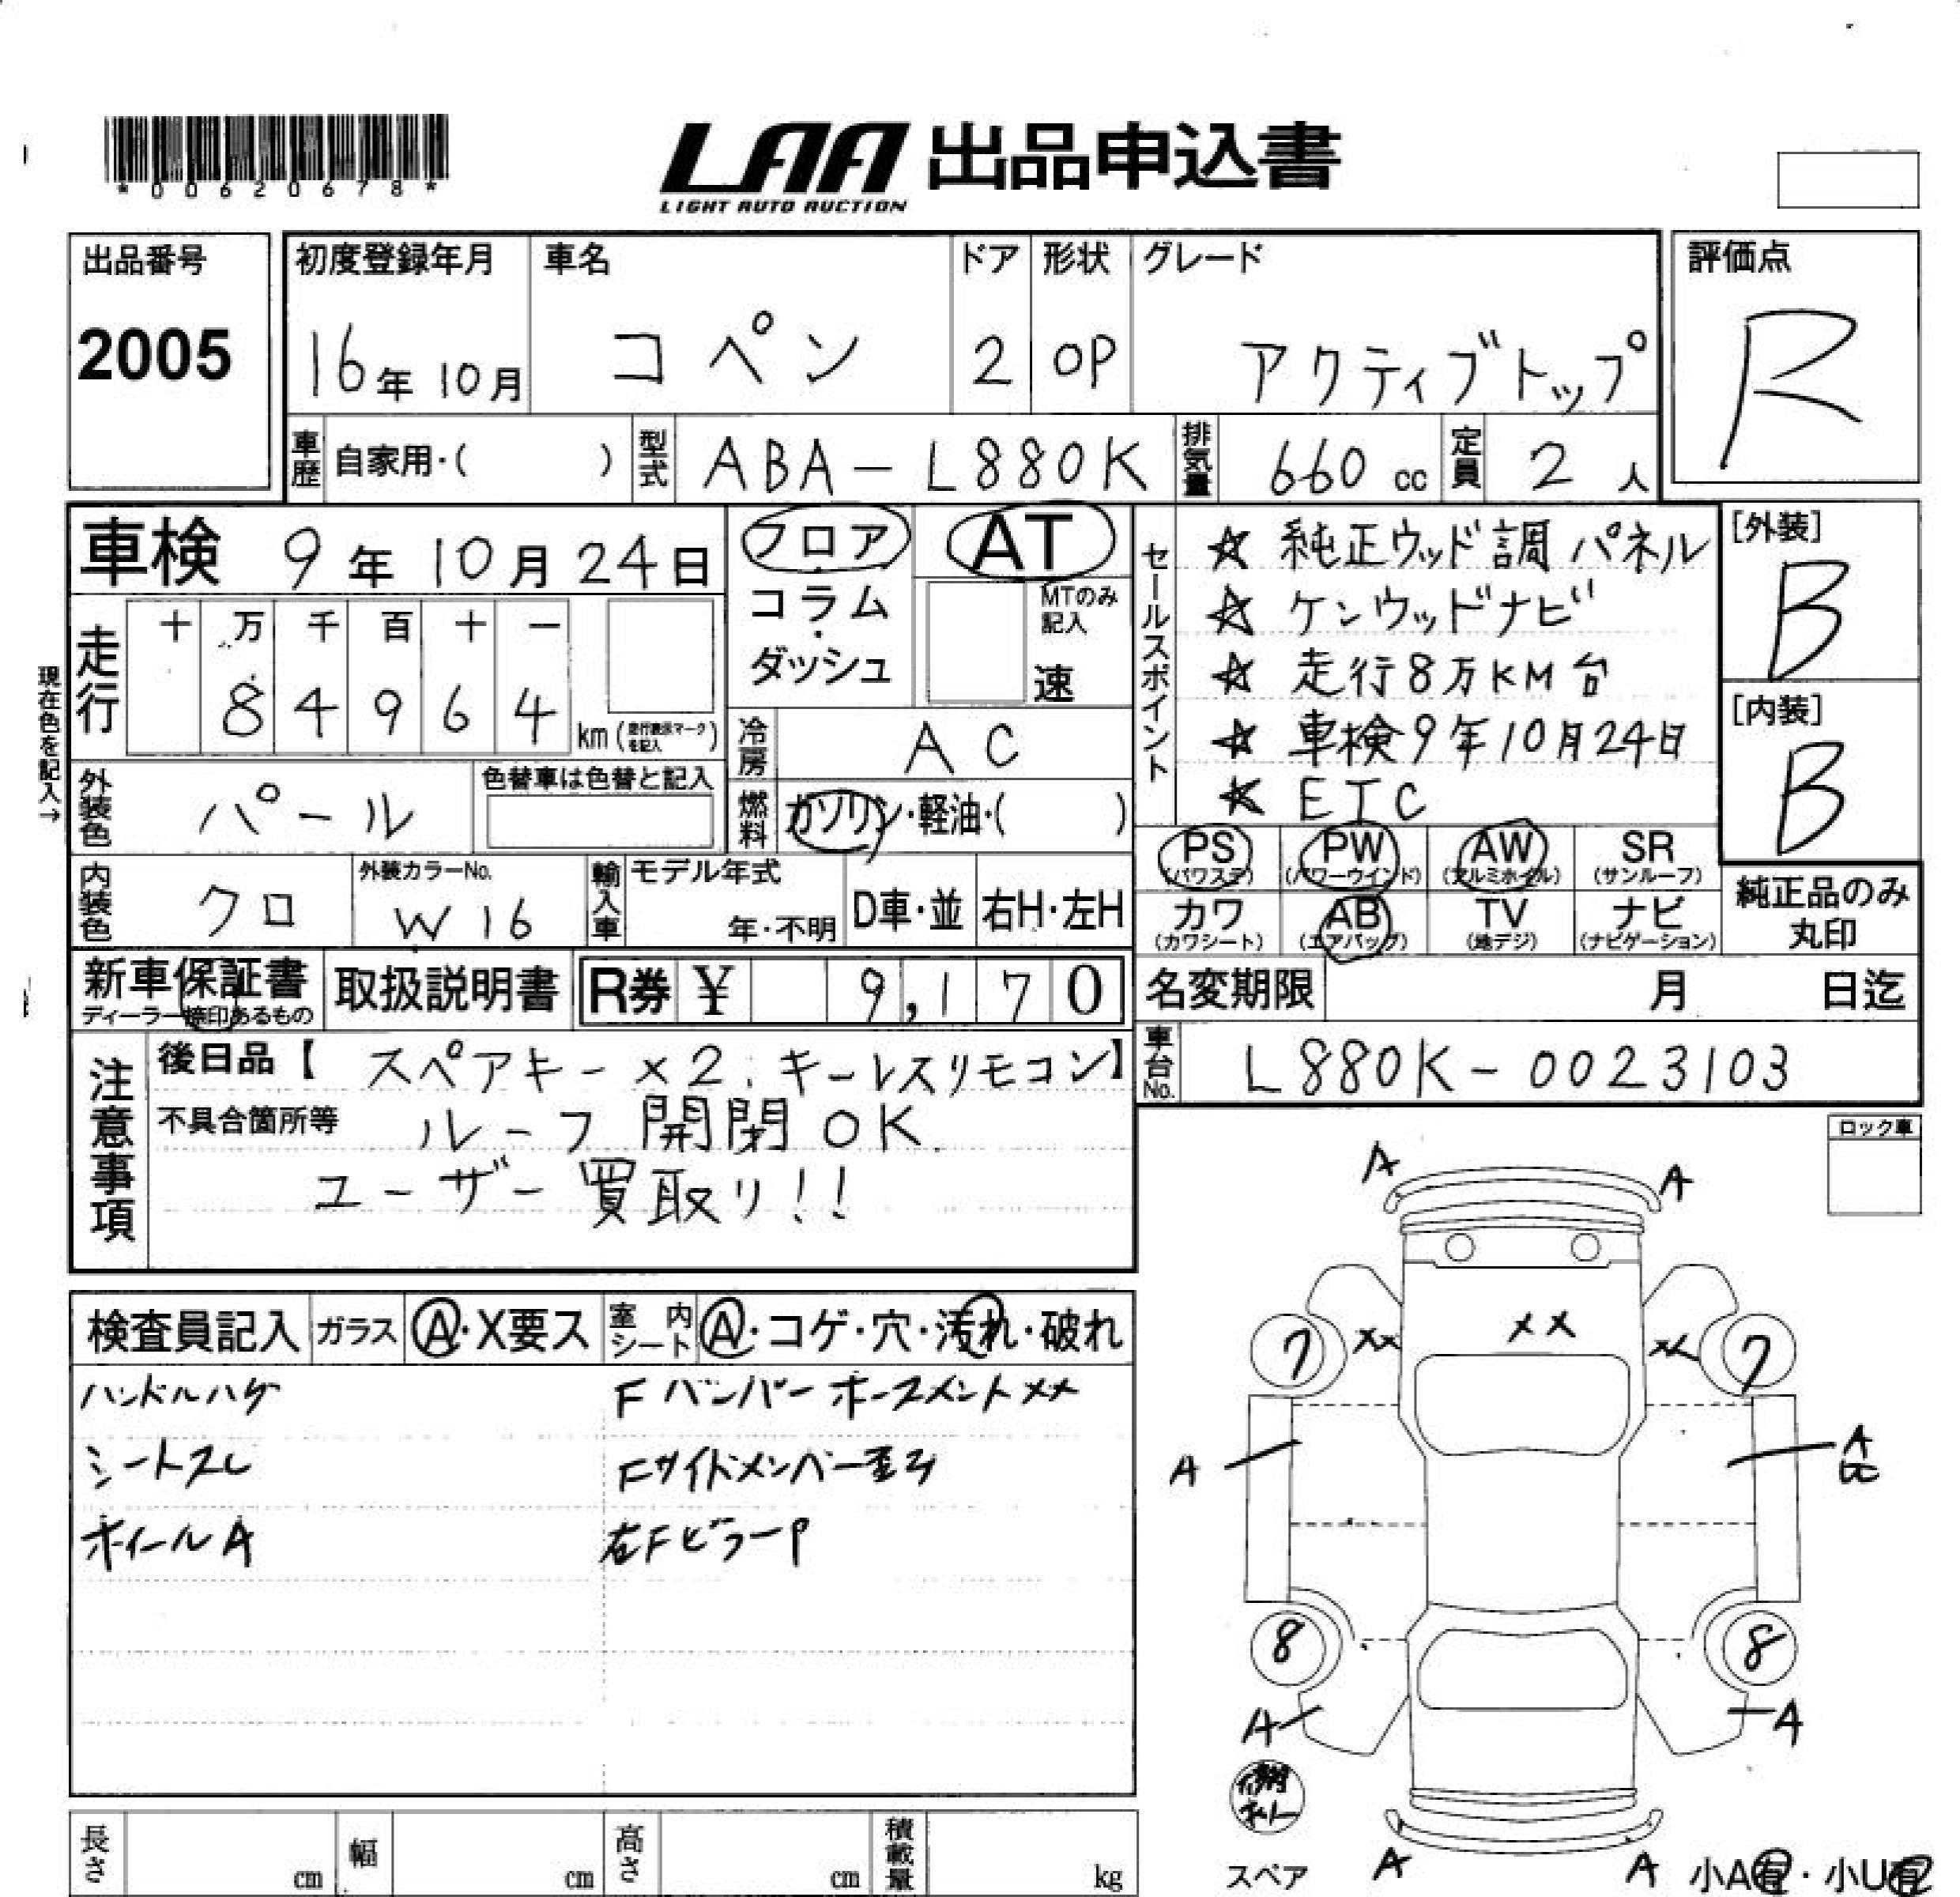 *00620678*
LAA 出品申込書
LIGHT AUTO AUCTION
出品番号
2005
初度登録年月
16年 10月
車名
コペン
ドア
2
形状
OP
グレード
アクティブトップ
評価点
R
車歴
自家用・( )
型式
ABA-L880K
排気量
660 cc
定員
2 人
車検 9年 10月 24日
走行
十 万 千 百 十 一
8 4 9 6 4 km
現在色を記入→
フロア
コラム
・
ダッシュ
AT
MTのみ
記入
速
冷房
AC
燃料
ガソリン・軽油・( )
セールスポイント
☆ 純正ウッド調パネル
☆ ケンウッドナビ
☆ 走行8万KM台
☆ 車検9年10月24日
☆ ETC
[外装]
B
[内装]
B
外装色
パール
色替車は色替と記入
内装色
クロ
外装カラーNo.
W16
輸入車
モデル年式
年・不明
D車・並
右H・左H
PS
(パワステ)
PW
(パワーウインド)
AW
(アルミホイル)
SR
(サンルーフ)
カワ
(カワシート)
AB
(エアバッグ)
TV
(地デジ)
ナビ
(ナビゲーション)
純正品のみ
丸印
新車保証書
ディーラー捺印あるもの
取扱説明書
R券 ¥ 9,170
名変期限 月 日迄
車台No.
L880K-0023103
注意事項
後日品【 スペアキー×2. キーレスリモコン】
不具合箇所等 ルーフ開閉OK
ユーザー買取り!!
ロック車
検査員記入
ガラス
A・X要ス
室内シート
A・コゲ・穴・汚れ・破れ
ハンドルハゲ
シートスレ
ホイールA
FバンパーホースメントXX
Fサイドメンバー歪み
右FピラーP
A A
7 XX XX XX 7
A A
8 8
A A
スペア
A A
小A有・小U有
長さ cm
幅 cm
高さ cm
積載量 kg